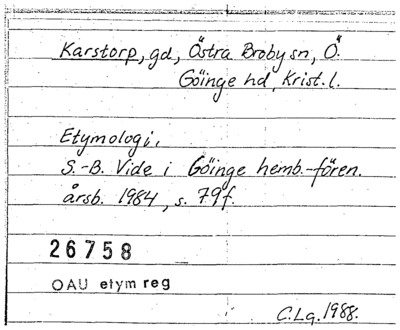 Karstorp, gd, Östra Broby sn, Ö.
Göinge hd, Krist. l.
Etymologi.
S.-B. Vide i Göinge hemb.-fören.
årsb. 1984, s. 79f.
26758
OAU etym reg
C.Lg. 1988.